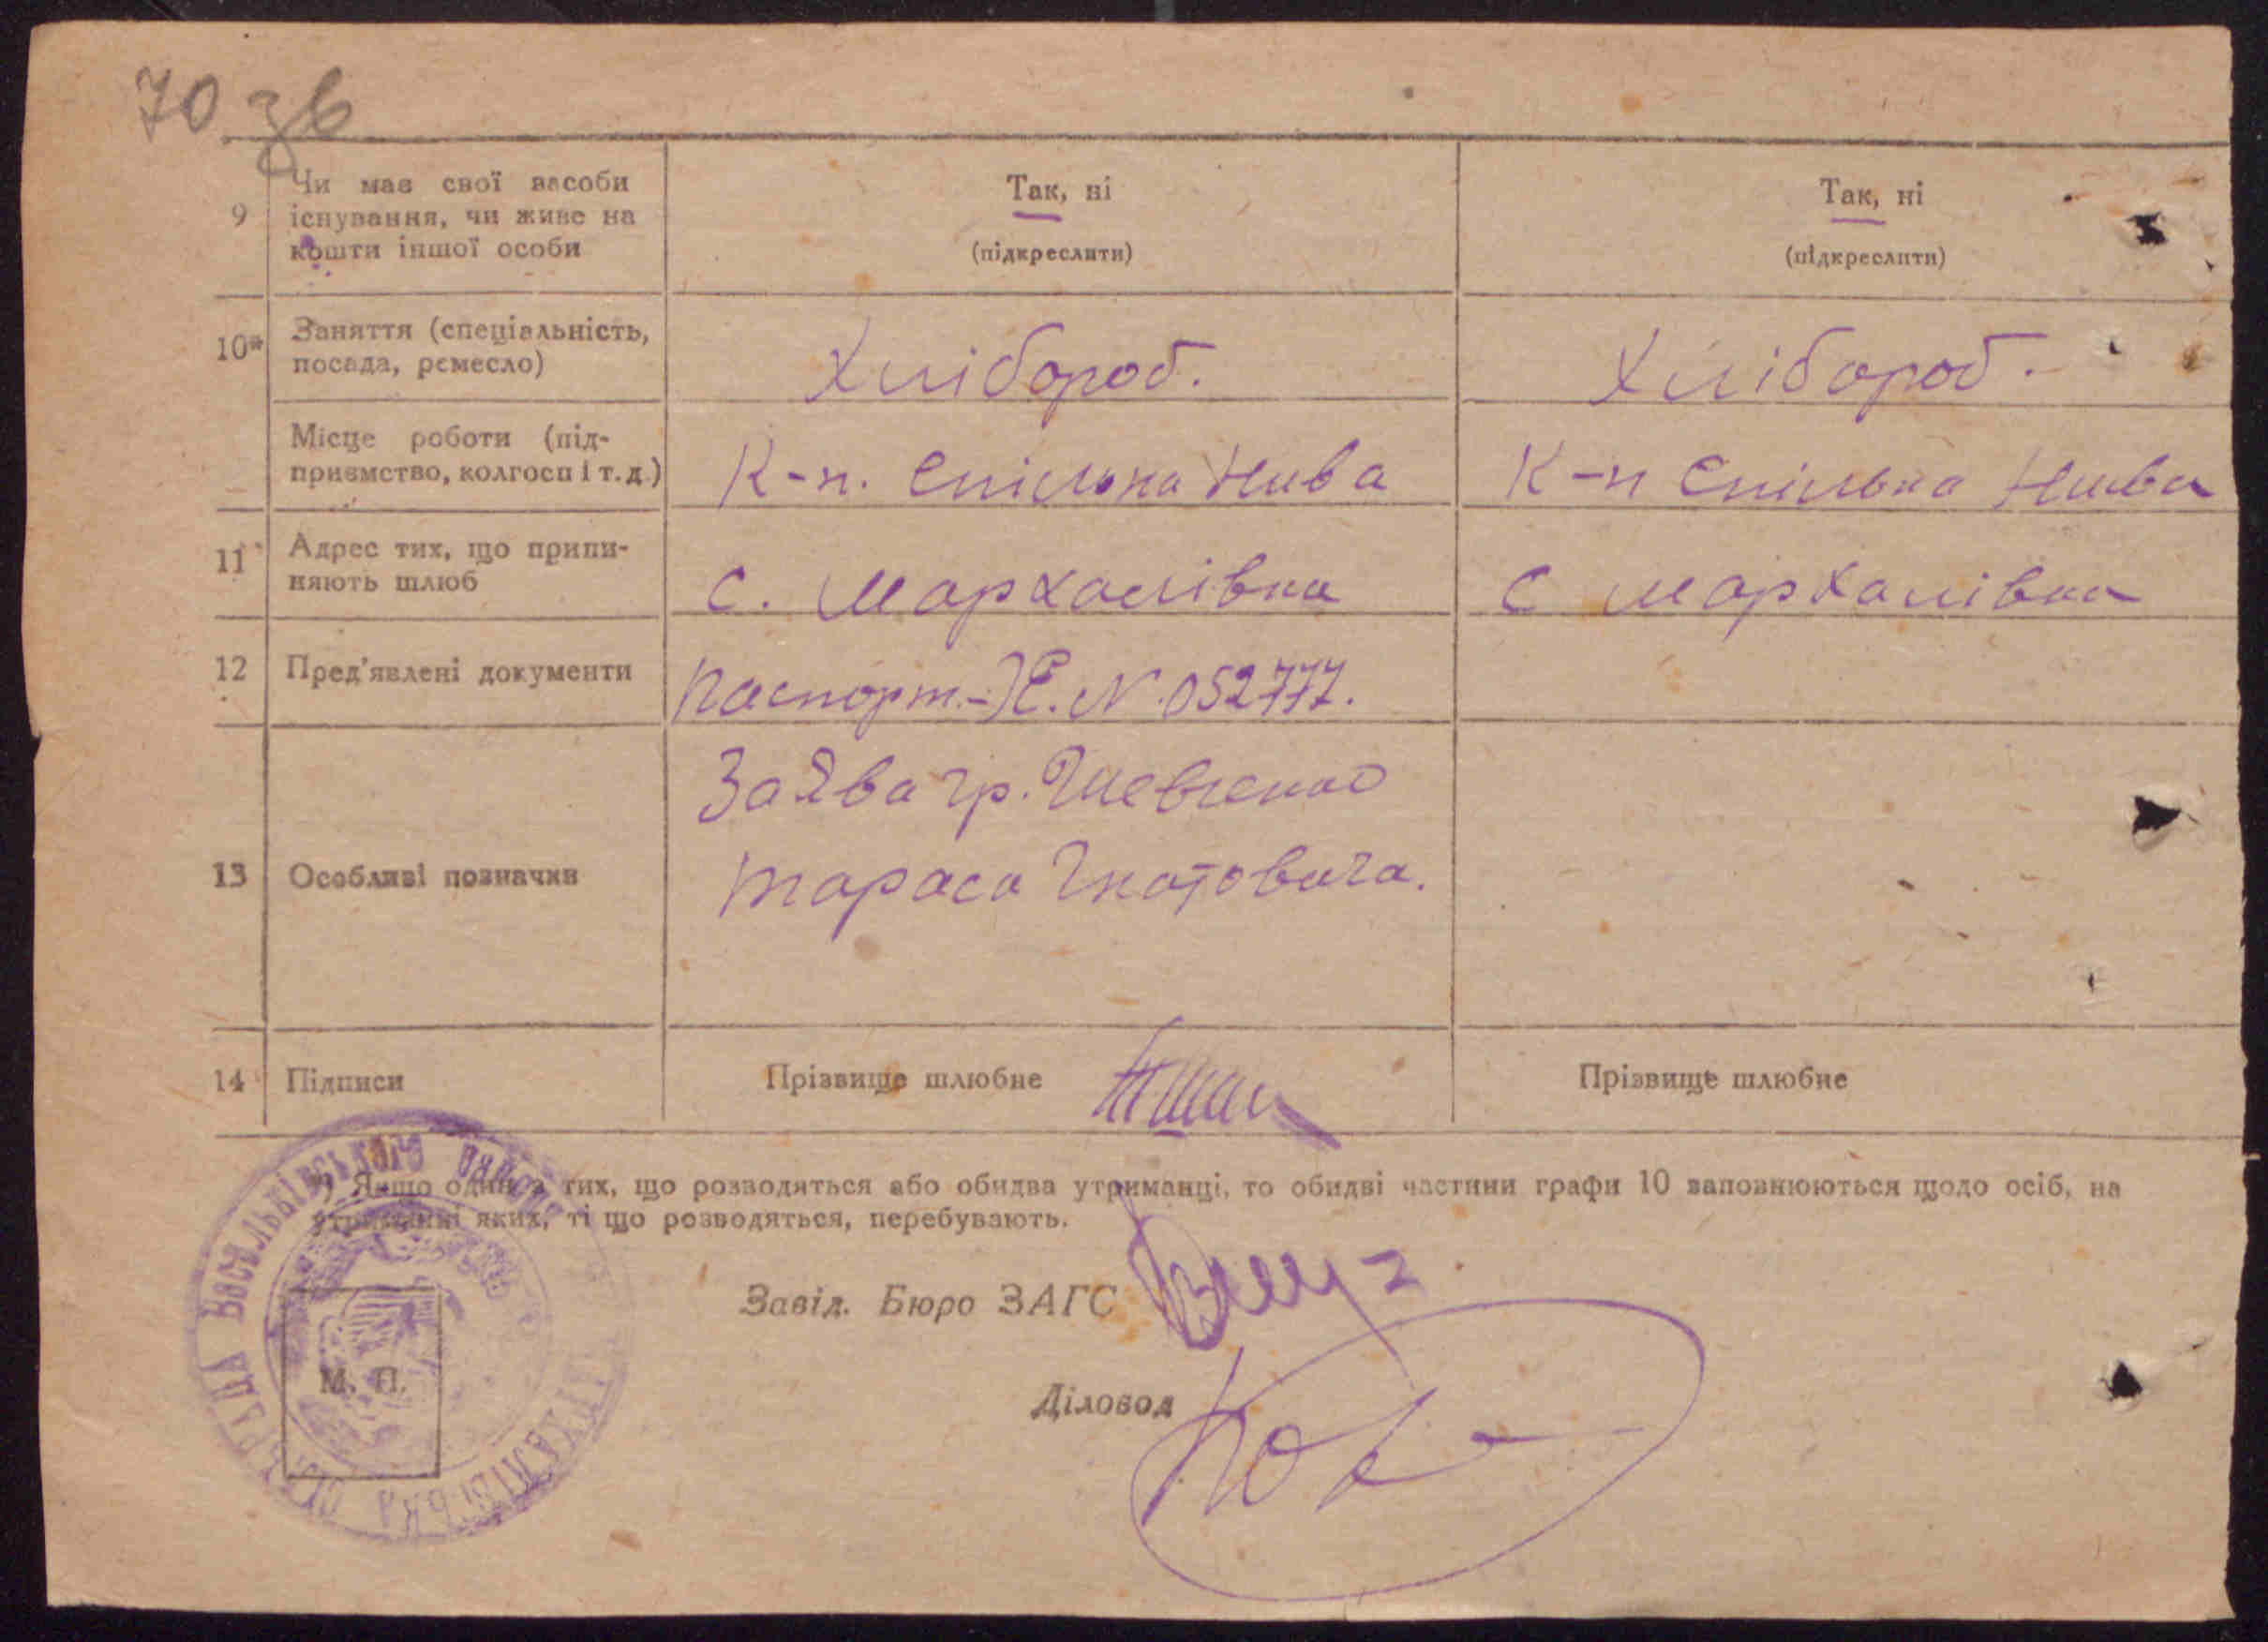 70 зв
9 Чи має свої засоби існування, чи живе на кошти іншої особи
Так, ні
(підкреслити)
Так, ні
(підкреслити)
10* Заняття (спеціальність, посада, ремесло)
Хлібороб.
Хлібороб.
Місце роботи (підприємство, колгосп і т. д.)
К-п. Спільна Нива
К-п Спільна Нива
11 Адрес тих, що припиняють шлюб
с. Мархалівка
с Мархалівка
12 Пред'явлені документи
Паспорт - N. 052777.
13 Особливі позначки
Заява гр. Шевченко
Тараса Гнатовича.
14 Підписи
Прізвище шлюбне
Прізвище шлюбне
*) Якщо один з тих, що розводяться або обидва утриманці, то обидві частини графи 10 заповнюються щодо осіб, на
утриманні яких, ті що розводяться, перебувають.
Завід. Бюро ЗАГС
Діловод
М. П.
Мархалівська сільрада Васильківського району